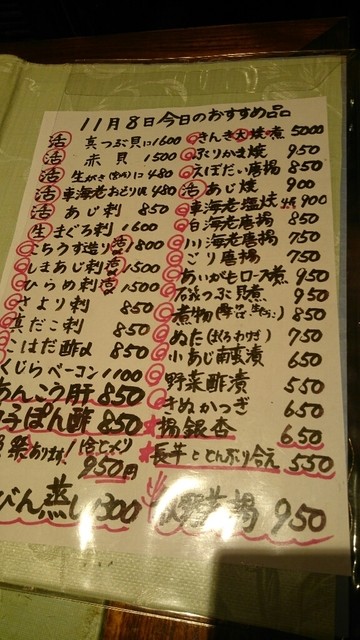 11月8日今日のおすすめ品
活 真つぶ貝 1600
活 赤貝 1500
活 生がき 480
活 車海老おどり 480
活 あじ刺 850
生 まぐろ刺 1600
こちうす造り 活 1800
しまあじ刺 活 1500
ひらめ刺 活 1500
さより刺 850
真だこ刺 850
こはだ酢〆 850
くじらベーコン 1100
あんこう肝 850
子ぽん酢 850
あります!
950円
びん蒸し 1300
きんき 大 焼・煮 5000
ぶりかま焼 950
えぼだい唐揚 850
活 あじ焼 900
車海老塩焼 900
白海老唐揚 850
川海老唐揚 750
ごり唐揚 750
あいがもロース煮 950
つぶ貝煮 950
煮物 850
ぬた(まぐろわけぎ) 750
小あじ南蛮漬 650
野菜酢漬 550
きぬかつぎ 650
揚銀杏 650
長芋ととんぶり合え 550
揚 950